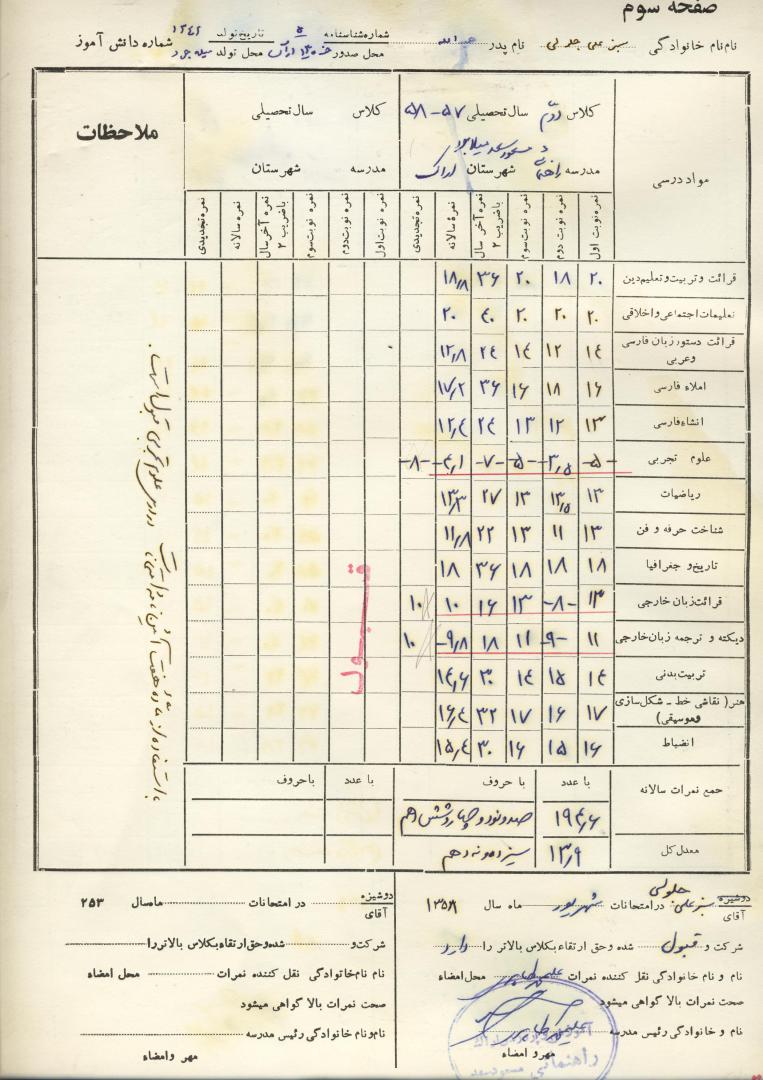 صفحه سوم
نام نام خانوادگی سبز علی جلولی نام پدر عبداله شماره شناسنامه ۵ تاریخ تولد ۱۳۴۴ شماره دانش آموز
محل صدور اراک محل تولد میله جرد
مواد درسی
کلاس دوم سال تحصیلی ۵۷ - ۵۸
مدرسه راهنمائی مسعود سعد میلاجرد شهرستان اراک
کلاس سال تحصیلی
مدرسه شهرستان
ملاحظات
نمره نوبت اول نمره نوبت دوم نمره نوبت سوم نمره آخر سال باضریب ۲ نمره سالانه نمره تجدیدی
نمره نوبت اول نمره نوبت دوم نمره نوبت سوم نمره آخر سال باضریب ۲ نمره سالانه نمره تجدیدی
قرائت و تربیت و تعلیم دین ۲۰ ۱۸ ۲۰ ۳۶ ۱۸/۸
تعلیمات اجتماعی و اخلاقی ۲۰ ۲۰ ۲۰ ۴۰ ۲۰
قرائت دستور زبان فارسی وعربی ۱۴ ۱۲ ۱۴ ۲۴ ۱۲/۸
املاء فارسی ۱۶ ۱۸ ۱۶ ۳۶ ۱۷/۲
انشاء فارسی ۱۳ ۱۲ ۱۳ ۲۴ ۱۲/۴
علوم تجربی -۵- -۳/۵- -۵- -۷- -۴/۱- -۸-
ریاضیات ۱۳ ۱۳/۵ ۱۳ ۲۷ ۱۳/۳
شناخت حرفه و فن ۱۳ ۱۱ ۱۳ ۲۲ ۱۱/۸
تاریخ و جغرافیا ۱۸ ۱۸ ۱۸ ۳۶ ۱۸
قرائت زبان خارجی ۱۳ -۸- ۱۳ ۱۶ ۱۰ ۱۰
دیکته و ترجمه زبان خارجی ۱۱ -۹- ۱۱ ۱۸ -۹/۸ ۱۰
تربیت بدنی ۱۴ ۱۵ ۱۴ ۳۰ ۱۴/۶
هنر ( نقاشی خط - شکل سازی وموسیقی) ۱۷ ۱۶ ۱۷ ۳۲ ۱۶/۴
انضباط ۱۶ ۱۵ ۱۶ ۳۰ ۱۵/۴
قبول
با استفاده از ماده هفت آئین نامه در درس علوم تجربی قبول است .
جمع نمرات سالانه با عدد با حروف با عدد باحروف
۱۹۴/۶ صد و نود و چهار و شش دهم
معدل کل ۱۳/۹ سیزده و نه دهم
دوشیزه
آقای سبز علی جلولی در امتحانات شهریور ماه سال ۱۳۵۸
شرکت و قبول شده وحق ارتقاء بکلاس بالاتر را دارد
نام و نام خانوادگی نقل کننده نمرات محل امضاء
صحت نمرات بالا گواهی میشود
نام و خانوادگی رئیس مدرسه
مهر و امضاء
دوشیزه
آقای در امتحانات ماه سال ۲۵۳
شرکت و شده وحق ارتقاء بکلاس بالاتر را
نام نام خانوادگی نقل کننده نمرات محل امضاء
صحت نمرات بالا گواهی میشود
نام و نام خانوادگی رئیس مدرسه
مهر و امضاء
راهنمائی مسعود سعد